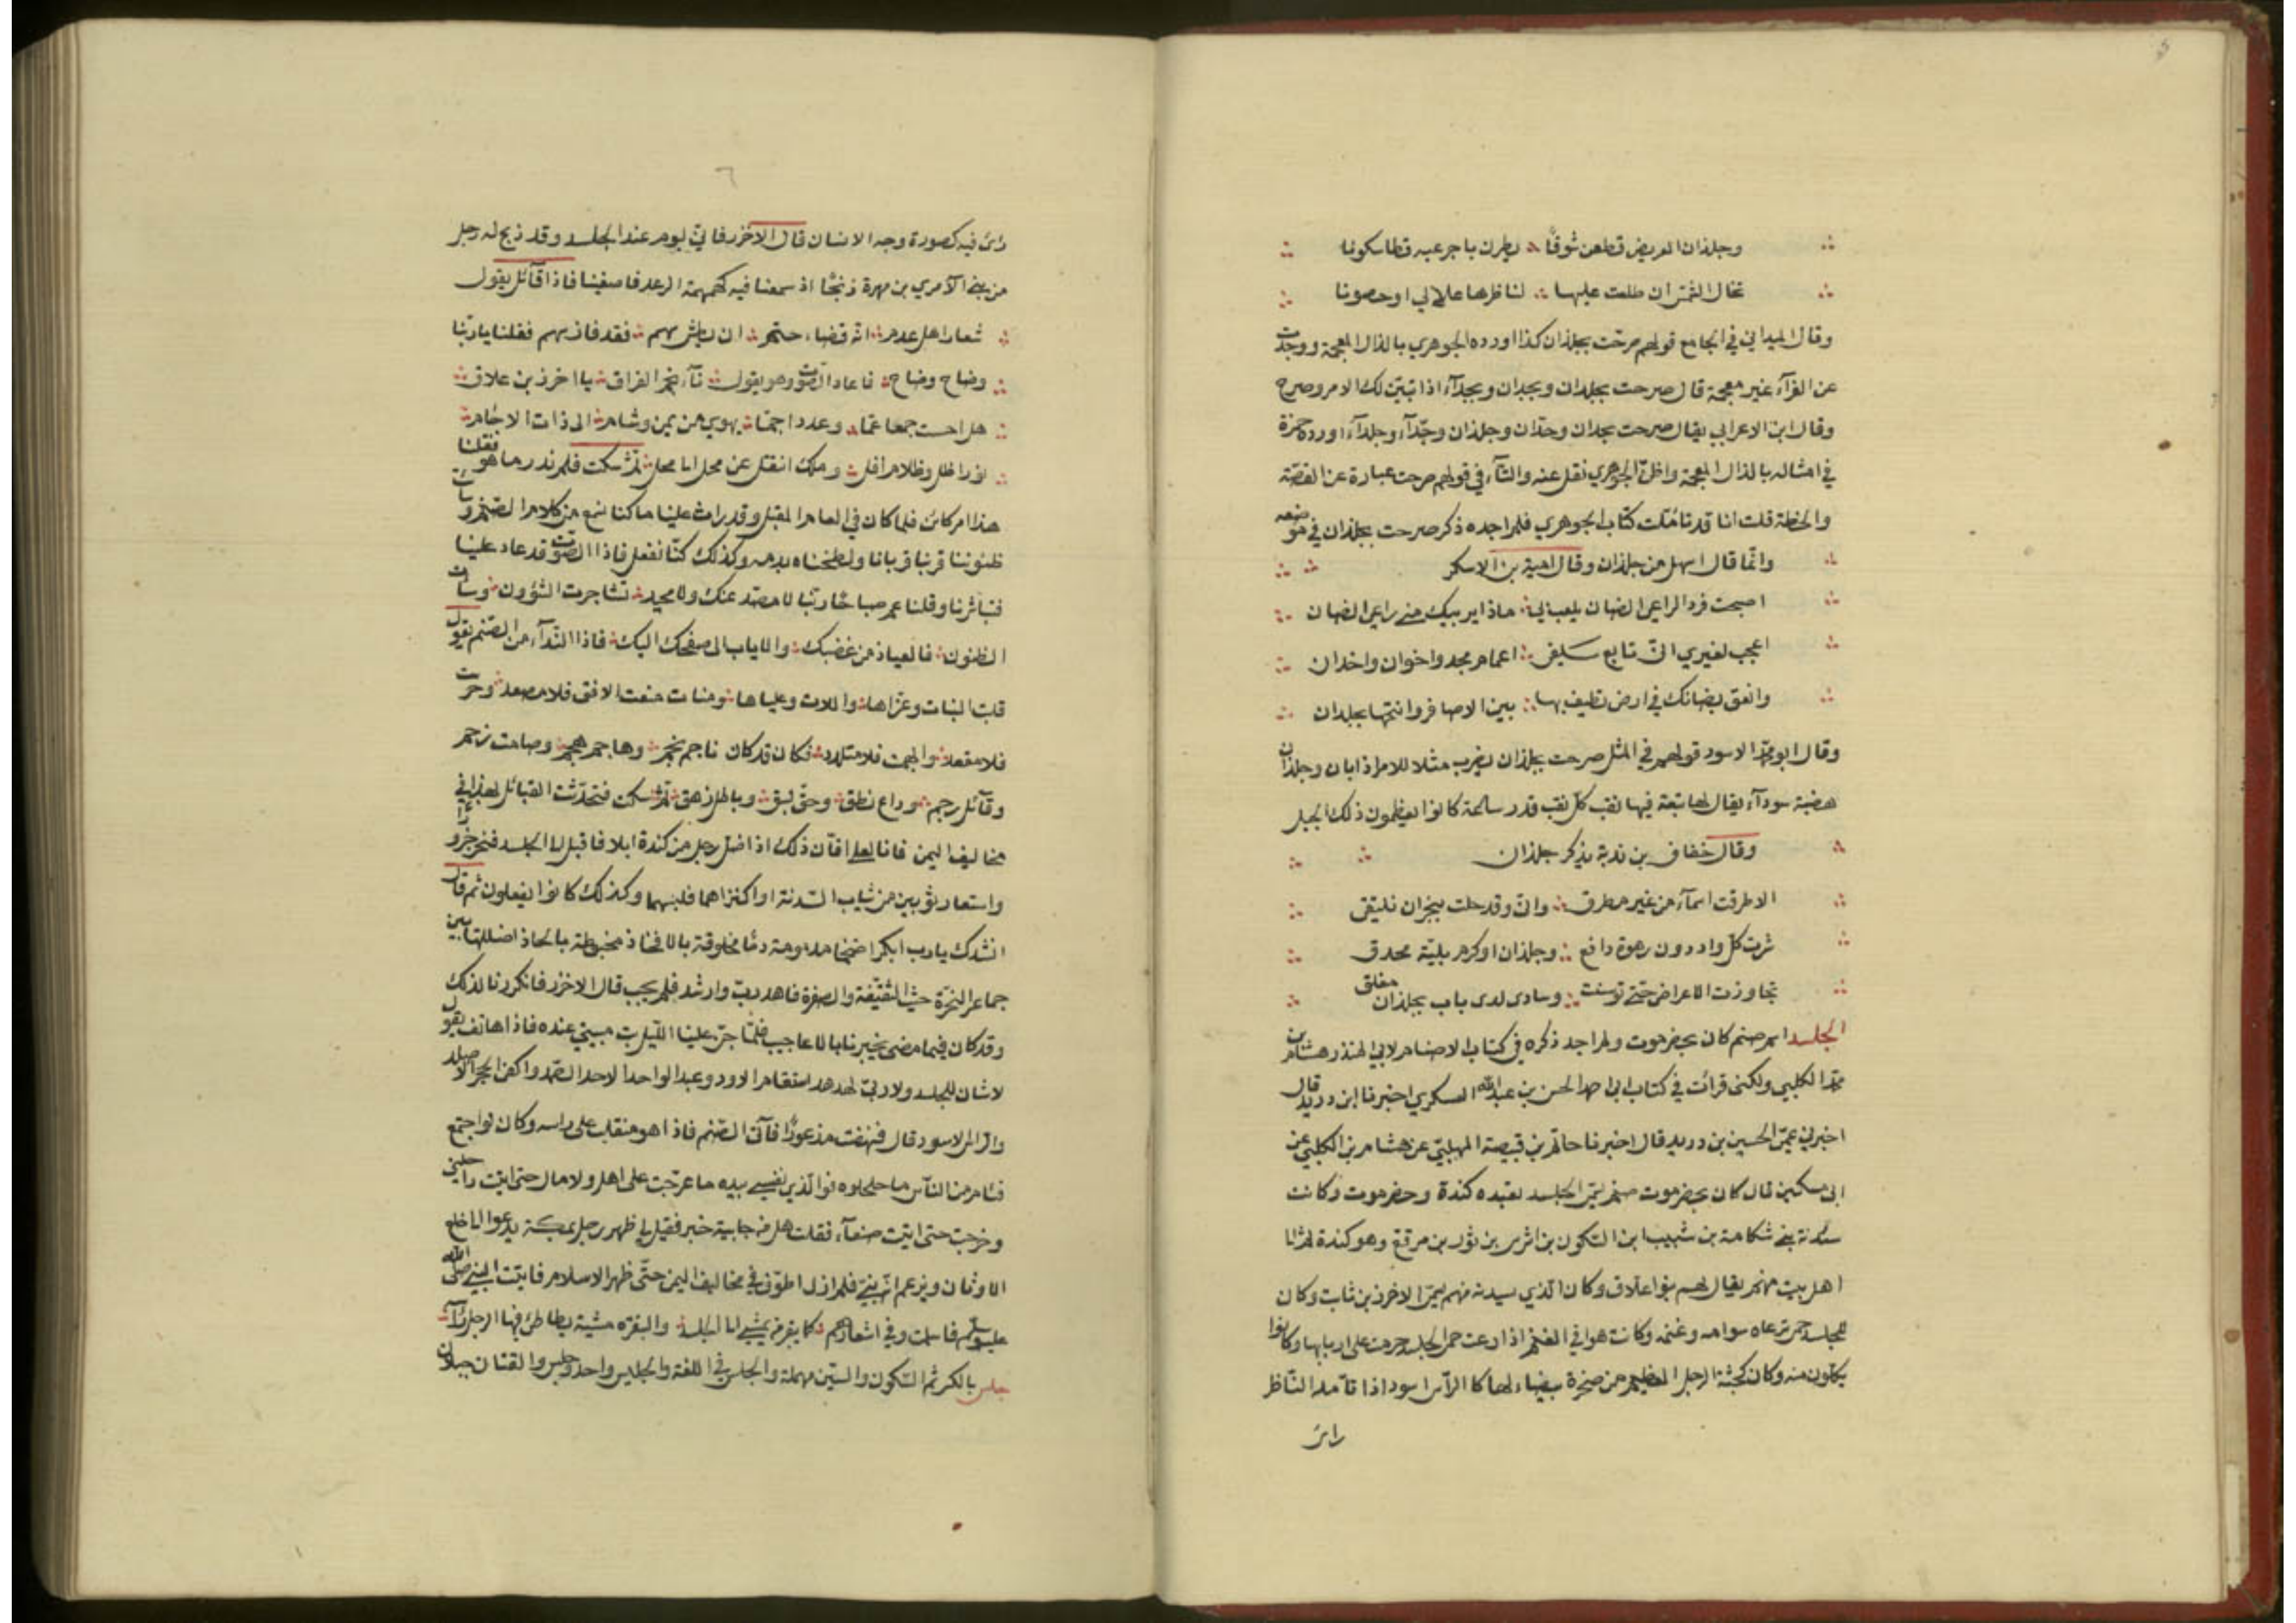 وجلذان العريض قطعن شوقًا ∴ يطرن باجرعيه قطا سكونا
تخال الشمس ان طلعت عليها ∴ لناظرها علالي او حصونا
وقال الميداني في الجامع قولهم صرحت بجلذان كذا اورده الجوهري بالذال المعجمة ووجدت
عن الفرآء غير معجمة قال صرحت بجلدان وبجدان وبجدآء اذا تبين لك الامر وصرح
وقال ابن الاعرابي يقال صرحت بجدان وجدان وجلذان وجدآء وجلدآء اورده حمزة
في امثاله بالذال المعجمة واظن الجوهري نقل عنه والتآء في قولهم صرحت عبارة عن القصة
والخطة قلت انا قد تاملت كتاب الجوهري فلم اجده ذكر صرحت بجلذان في موضعه
وانما قال اسهل من جلذان وقال امية بن الاسكر
اصبحت فردا لراعي الضان يلعب بي ∴ ماذا يريبك مني راعي الضان
اعجب لغيري اني تابع سلفي ∴ اعمام مجد واخوان واخدان
وانعق بضانك في ارض تطيف بها ∴ بين الاصافر وانتجها بجلدان
وقال ابو محمد الاسود قولهم في المثل صرحت بجلذان يضرب مثلا للامر اذا بان وجلذان
هضبة سودآء يقال لها تبعة فيها نقب كل نقب قدر ساعة كانوا يعظمون ذلك الجبل
وقال خفاف بن ندبة يذكر جلذان
الا طرقت اسمآء من غير مطرق ∴ واني وقد حلت بنجران نلتقي
سرت كل واد دون رهوة دافع ∴ وجلذان او كرم بلية محدق
تجاوزت الاعراض حتى توسنت ∴ وسادى لدى باب بجلذان مغلق
الجلسد اسم صنم كان بحضرموت ولم اجد ذكره في كتاب الاصنام لابي المنذر هشام بن
محمد الكلبي ولكني قرات في كتاب ابي احمد الحسن بن عبد الله العسكري اخبرنا ابن دريد قال
اخبرني عمي الحسين بن دريد قال اخبرنا حاتم بن قبيصة المهلبي عن هشام بن الكلبي عن
ابي مسكين قال كان بحضرموت صنم يسمى الجلسد تعبده كندة وحضرموت وكانت
سدنته بني شكامة بن شبيب ابن السكون بن اشرس بن ثور بن مرتع وهو كندة ثم الى
اهل بيت منهم يقال لهم بنوا علاق وكان الذي يسدنه منهم يسمى الاخزر بن ثابت وكان
للجلسد حمى ترعاه سوامه وغنمه وكانت هوافي الغنم اذا رعت حمى الجلسد حرمت على اربابها وكانوا
يكلمون منه وكان كجثة الرجل العظيم من صخرة بيضاء لها كالرآس اسود اذا تآمله الناظر
راى
٦
راى فيه كصورة وجه الانسان قال الاخزر فاني ليوم عند الجلسد وقد ذبح له رجل
من بني الآمري بن مهرة ذبحًا اذ سمعنا فيه كهمهمة الرعد فاصغينا فاذا قآئل يقول
شعار اهل عدم ∴ انه قضاء حتم ∴ ان بطش سهم ∴ فقد فاز سهم فقلنا يا ربنا
وضاح وضاح ∴ فاعاد الصوت وهو يقول ∴ نآء نجم العراق ∴ يا اخزر بن علاق ∴
هل احست جمعا عما ∴ وعددا جما ∴ يهوي من يمن وشام ∴ الى ذات الاجام ∴
نور اظل وظلام افل ∴ وملك انتقل عن محل الى محل ∴ ثم سكت فلم ندر ما هو فقلنا
هذا امر كائن فلما كان في العام المقبل وقد راث علينا ما كنا نسمع من كلام الصنم وساءت
ظنوننا قربنا قربانا ولطخناه بدمه وكذلك كنا نفعل فاذا الصوت قد عاد علينا
فتباشرنا وقلنا عم صباحًا ربنا لا مصد عنك ولا محيد ∴ تشاجرت الشؤون ∴ وساءت
الظنون ∴ فالعياذ من غضبك ∴ والاياب الى صفحك اليك ∴ فاذا الندآء من الصنم يقول
قلبت البنات وعزاها ∴ واللات وعلياها ∴ ومنات منعت الافق فلا مصعد ∴ وحرست
فلا مقعد ∴ وابهمت فلا متلدد ∴ فكان قد كان ناجم نجم ∴ وهاجم هجم ∴ وصامت زجم
وقآئل رجم ∴ وداع نطق ∴ وحق بسق ∴ وباطل زهق ∴ ثم سكت فتحدثت القبائل بهذا في
مخاليف اليمن فانا لعلى افآن ذلك اذا ضل رجل من كندة ابلا فاقبل الى الجلسد فنحر جزورا
واستعار ثوبين من ثياب السدنة او اكتراهما فلبسهما وكذلك كانوا يفعلون ثم قال
انشدك يا رب ابكرا ضخما مدمومة دمًا مخلوقة بالافخاذ مخبوطة بالحاذ اضللتها بين
جماهر النخرة حيث الشقيقة والصفرة فاهد رب وارشد فلم يجب قال الاخزر فانكرنا لذلك
وقد كان فيما مضى يخبرنا بالاعاجيب فلما جن علينا الليل بت مبيتي عنده فاذا هاتف يقول
لا شان للجلسد ولا رئى لهدهد استقام الاود وعبد الواحد الاحد الصمد واكفى الحجر الاصلد
والراس الاسود قال فنهضت مذعورًا فآتى الصنم فاذا هو منقلب على راسه وكان لو اجتمع
فئام من الناس ما حلحلوه فوالذي نفسي بيده ما عرجت على اهل ولا مال حتى اتيت راحلتي
وخرجت حتى اتيت صنعآء فقلت هل من جابية خبر فقيل لي ظهر رجل بمكة يدعوا الى خلع
الاوثان ويزعم انه نبي فلم ازل اطوف في مخاليف اليمن حتى ظهر الاسلام فاتيت النبي صلى الله
عليه وسلم فاسلمت وفي اشعارهم ∴ كما بيقر من يمشي الى الجلسد ∴ والبيقره مشية يطاطئ فيها الرجل راسه ∴
جلس بالكسر ثم السكون والسين مهملة والجلس في اللغة والجليس واحد وجلس والقنان جبلان